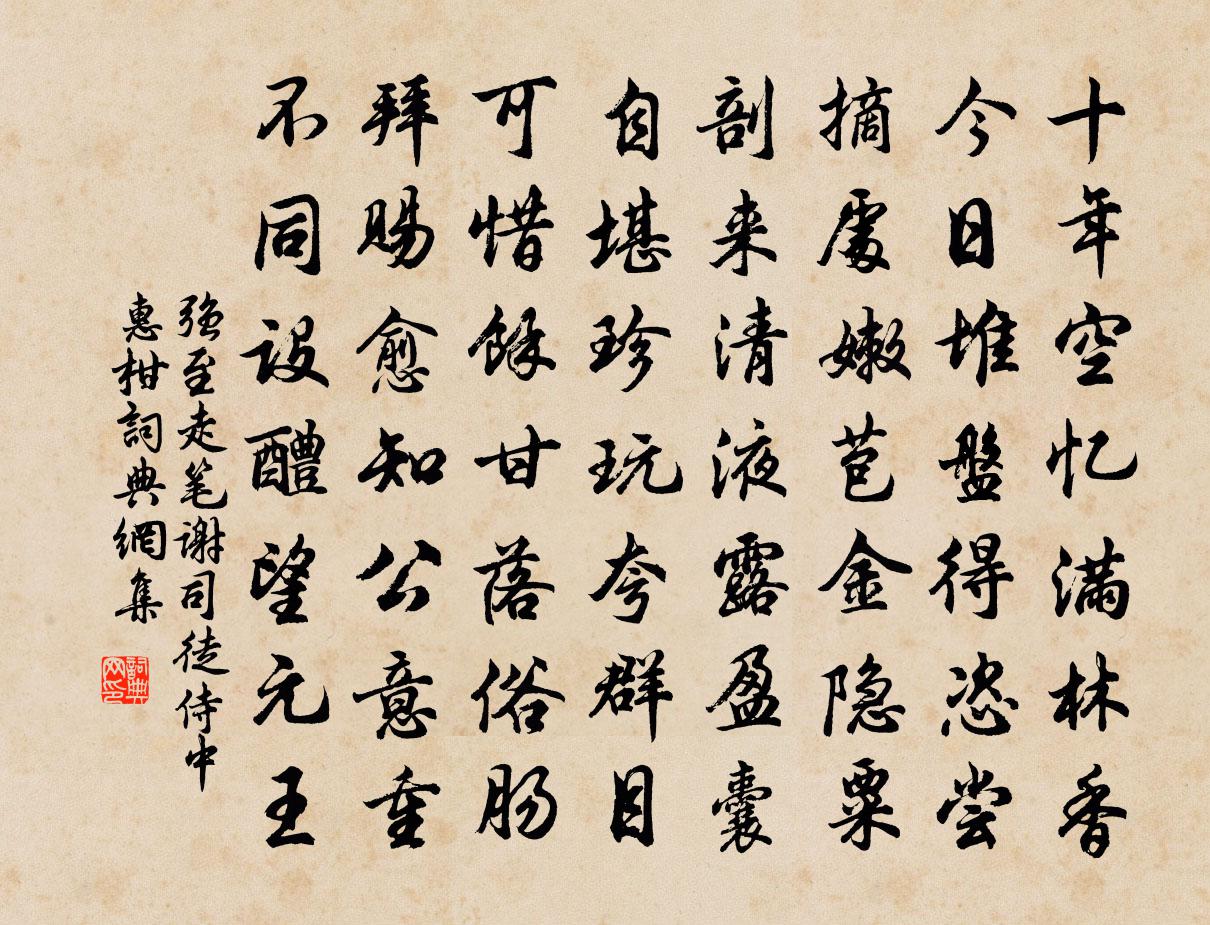 十年空忆满林香
今日堆盤得恣尝
摘處嫩苞金隐粟
剖来清液露盈囊
自堪珍玩夸群目
可惜馀甘落俗肠
拜賜愈知公意重
不同設醴望元王
强至走笔谢司徒侍中
惠柑詞典網集
詞典
网印